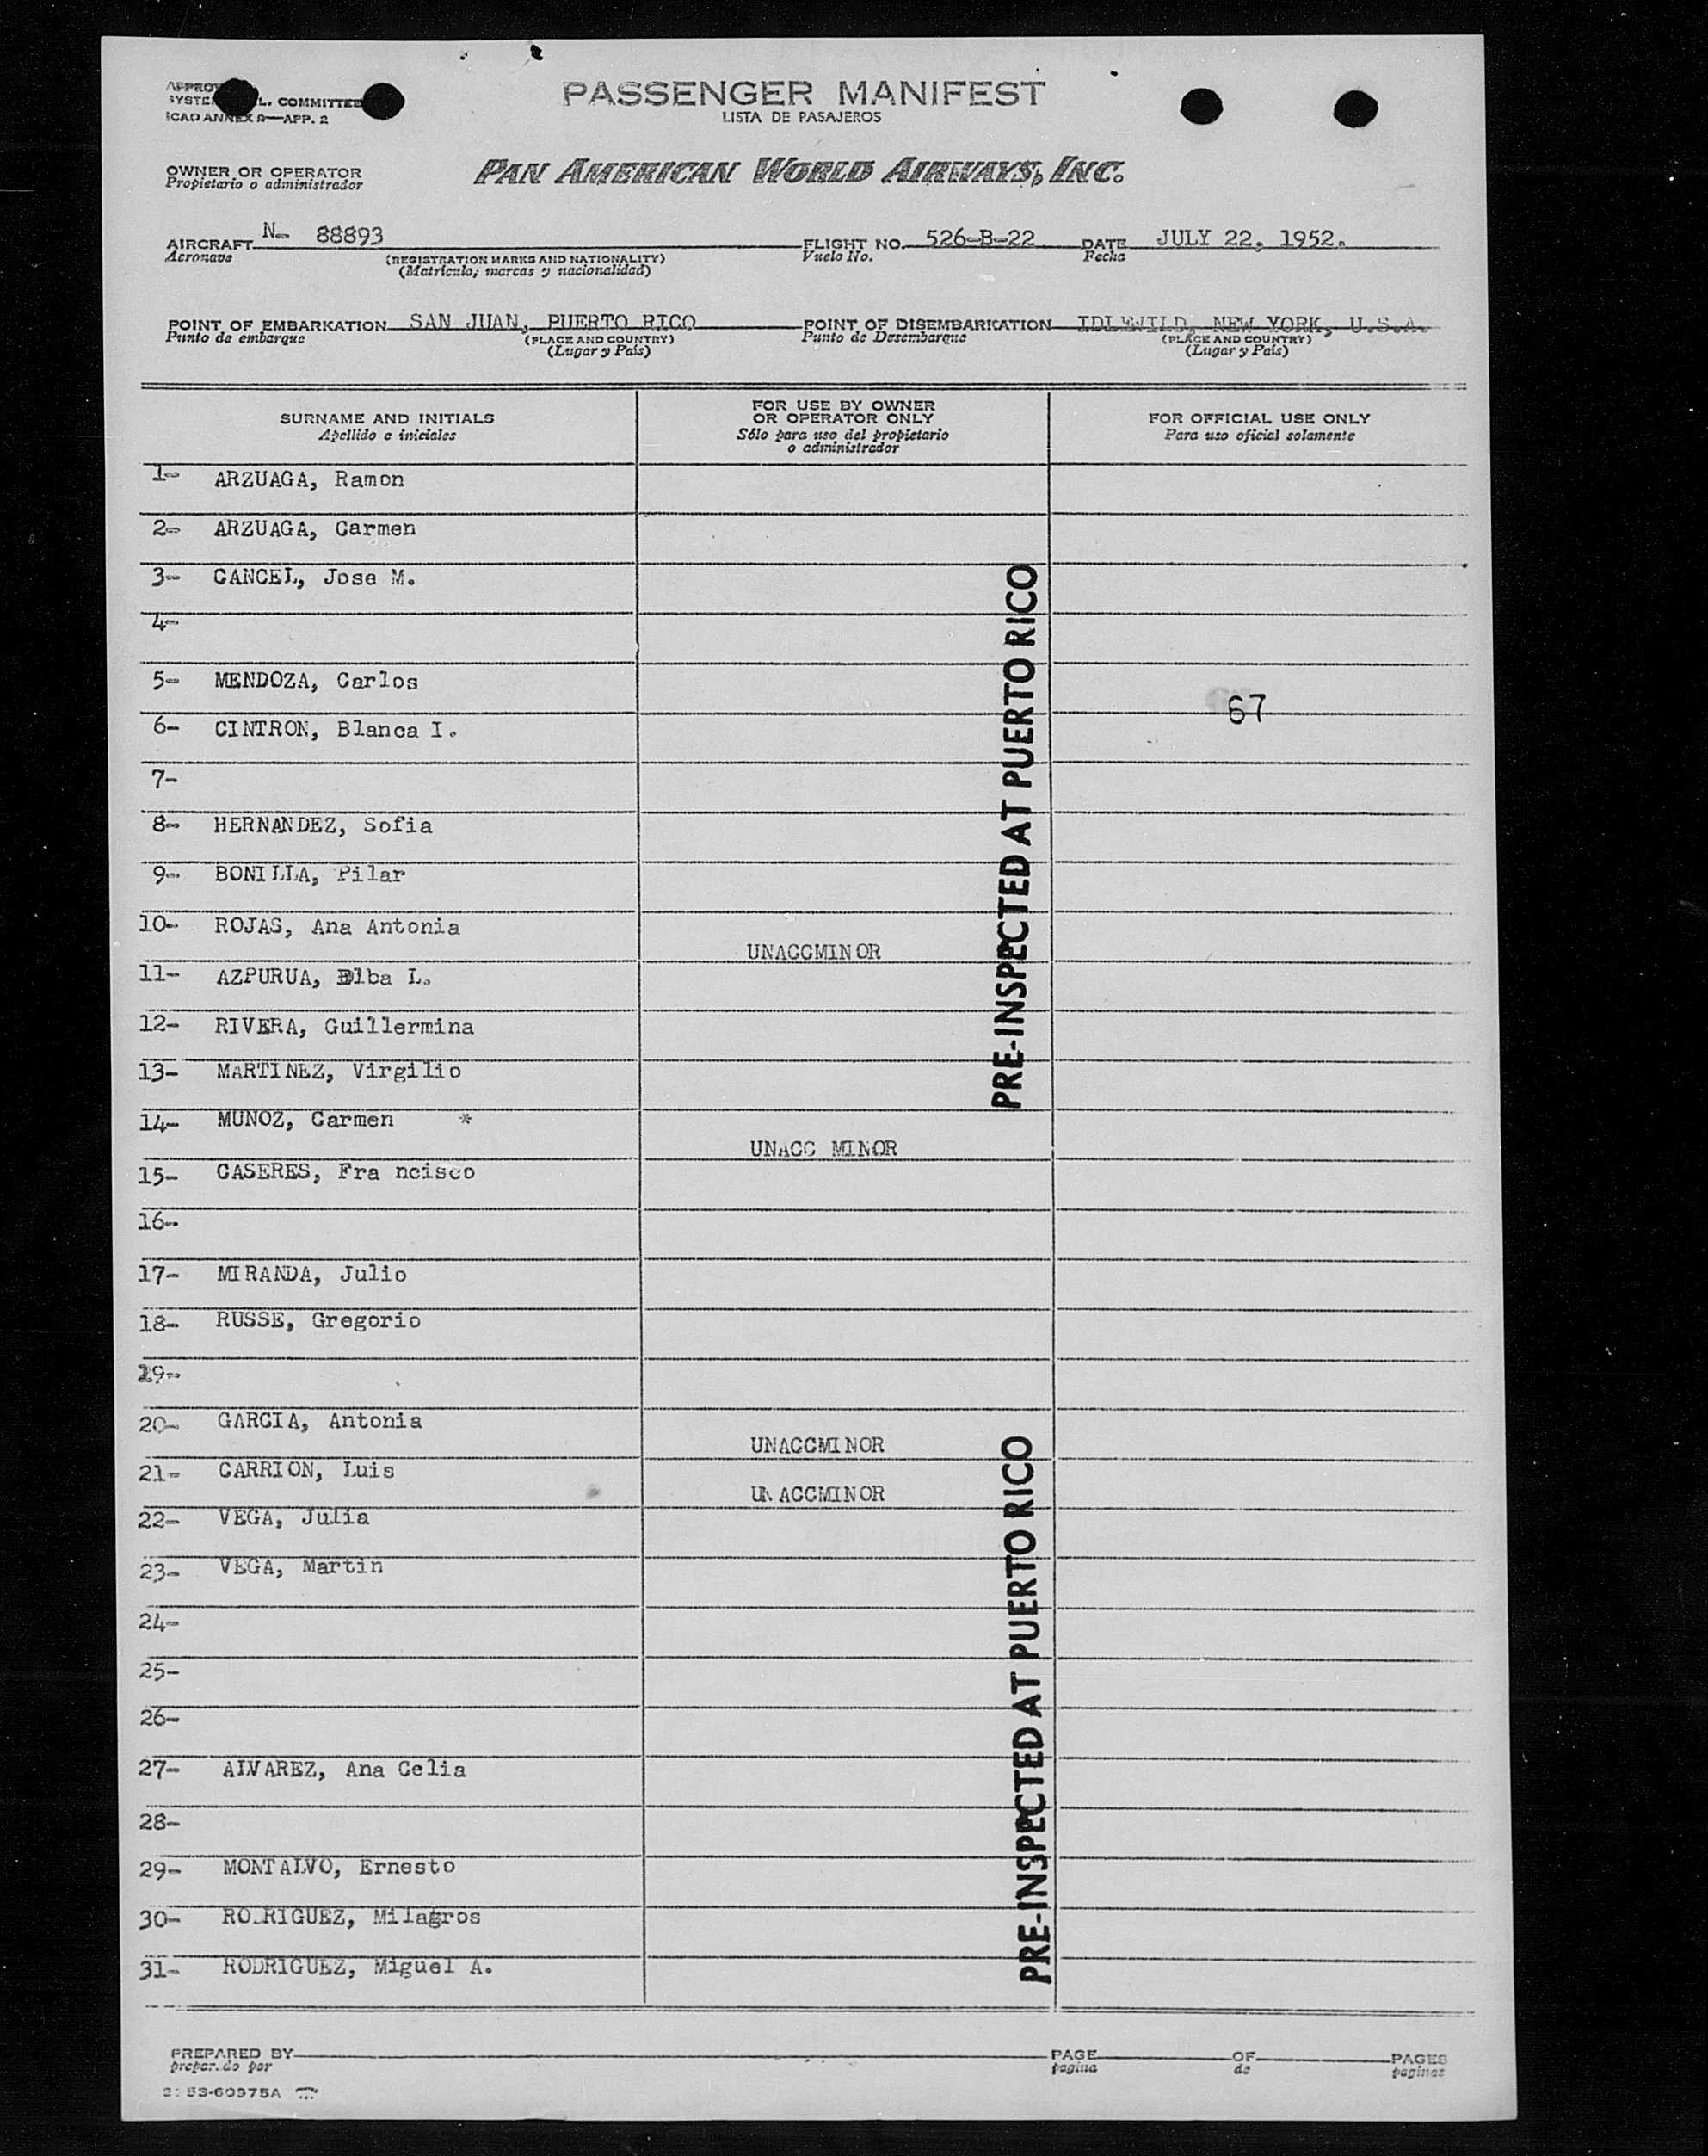 PASSENGER MANIFEST
LISTA DE PASAJEROS
L. COMMITTEE
ICAO ANNEX 9—APP. 2
OWNER OR OPERATOR
Propietario o administrador
PAN AMERICAN WORLD AIRWAYS, INC.
AIRCRAFT N- 88893 FLIGHT NO. 526-B-22 DATE JULY 22, 1952.
Aeronave (REGISTRATION MARKS AND NATIONALITY) Vuelo No. Fecha
(Matrícula, marcas y nacionalidad)
POINT OF EMBARKATION SAN JUAN, PUERTO RICO POINT OF DISEMBARKATION IDLEWILD, NEW YORK, U.S.A.
Punto de embarque (PLACE AND COUNTRY) Punto de Desembarque (PLACE AND COUNTRY)
(Lugar y País) (Lugar y País)
SURNAME AND INITIALS
Apellido e iniciales
FOR USE BY OWNER
OR OPERATOR ONLY
Sólo para uso del propietario
o administrador
FOR OFFICIAL USE ONLY
Para uso oficial solamente
1- ARZUAGA, Ramon
2- ARZUAGA, Carmen
3- CANCEL, Jose M.
4-
5- MENDOZA, Carlos
67
6- CINTRON, Blanca I.
7-
8- HERNANDEZ, Sofia
9- BONILLA, Pilar
10- ROJAS, Ana Antonia
UNACCMINOR
11- AZPURUA, Elba L.
12- RIVERA, Guillermina
13- MARTINEZ, Virgilio
14- MUNOZ, Carmen *
UNACC MINOR
15- CASERES, Fra ncisco
16-
17- MIRANDA, Julio
18- RUSSE, Gregorio
19-
20- GARCIA, Antonia
UNACCMINOR
21- CARRION, Luis
UNACCMINOR
22- VEGA, Julia
23- VEGA, Martin
24-
25-
26-
27- ALVAREZ, Ana Celia
28-
29- MONTALVO, Ernesto
30- RODRIGUEZ, Milagros
31- RODRIGUEZ, Miguel A.
PRE-INSPECTED AT PUERTO RICO
PRE-INSPECTED AT PUERTO RICO
PREPARED BY PAGE OF PAGES
preparado por pagina de paginas
53-60975A